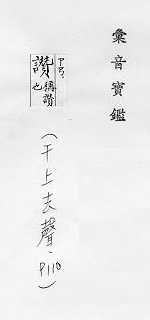 彙音寶鑑
讚 稱讚也
(干上去聲.P118)